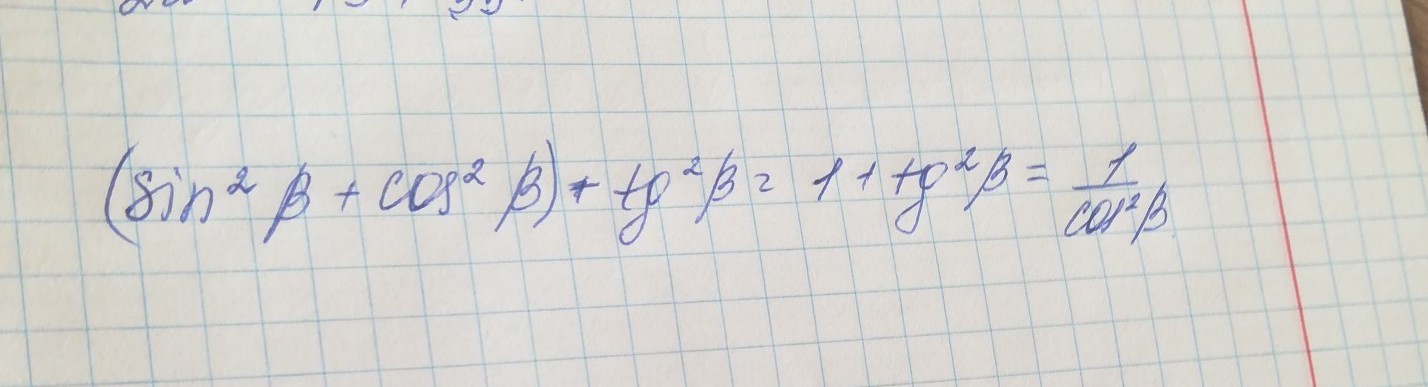 (sin² β + cos² β) + tg² β = 1 + tg² β = 1/cos² β